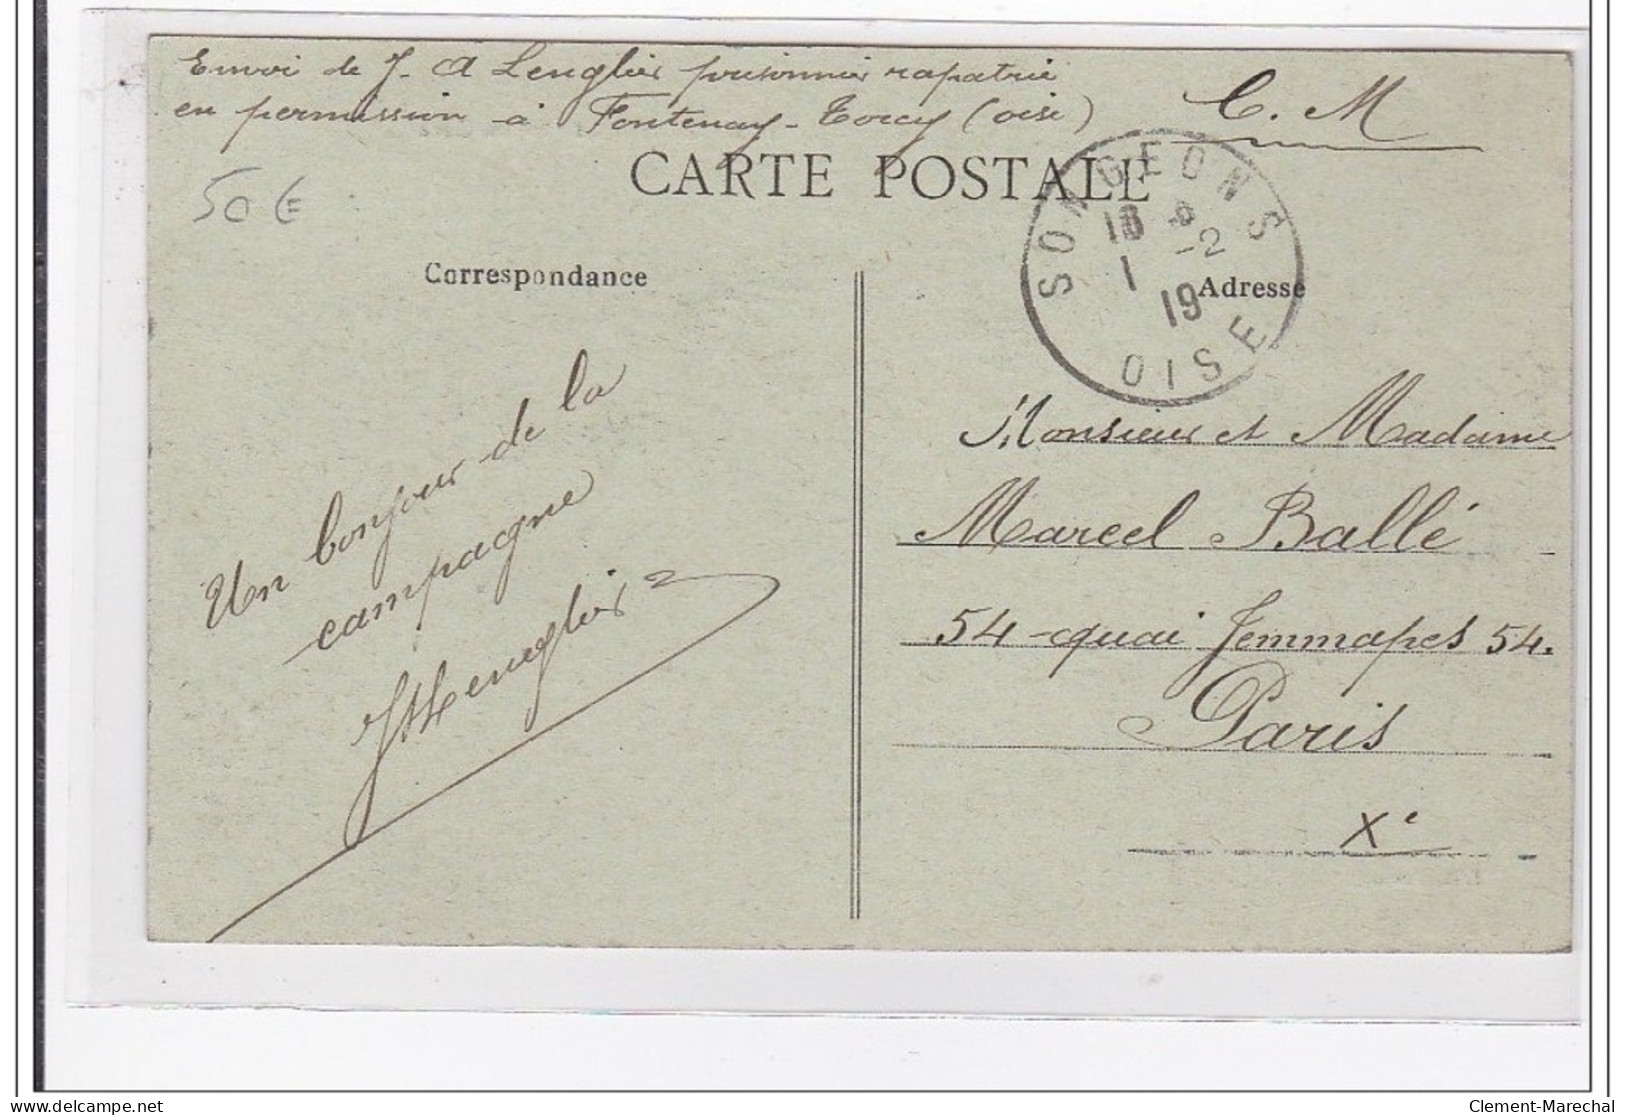 Envoi de J. A Lenglier prisonnier rapatrié
en permission à Fontenay-Torcy (oise)
C. M
CARTE POSTALE
50 €
SONGEONS
18
1 -2
19
OISE
Correspondance
Adresse
Un bonjour de la
campagne
JALenglier
Monsieur et Madame
Marcel Ballé
54 - quai Jemmapes 54.
Paris
Xe
delcampe.net
Clement-Marechal